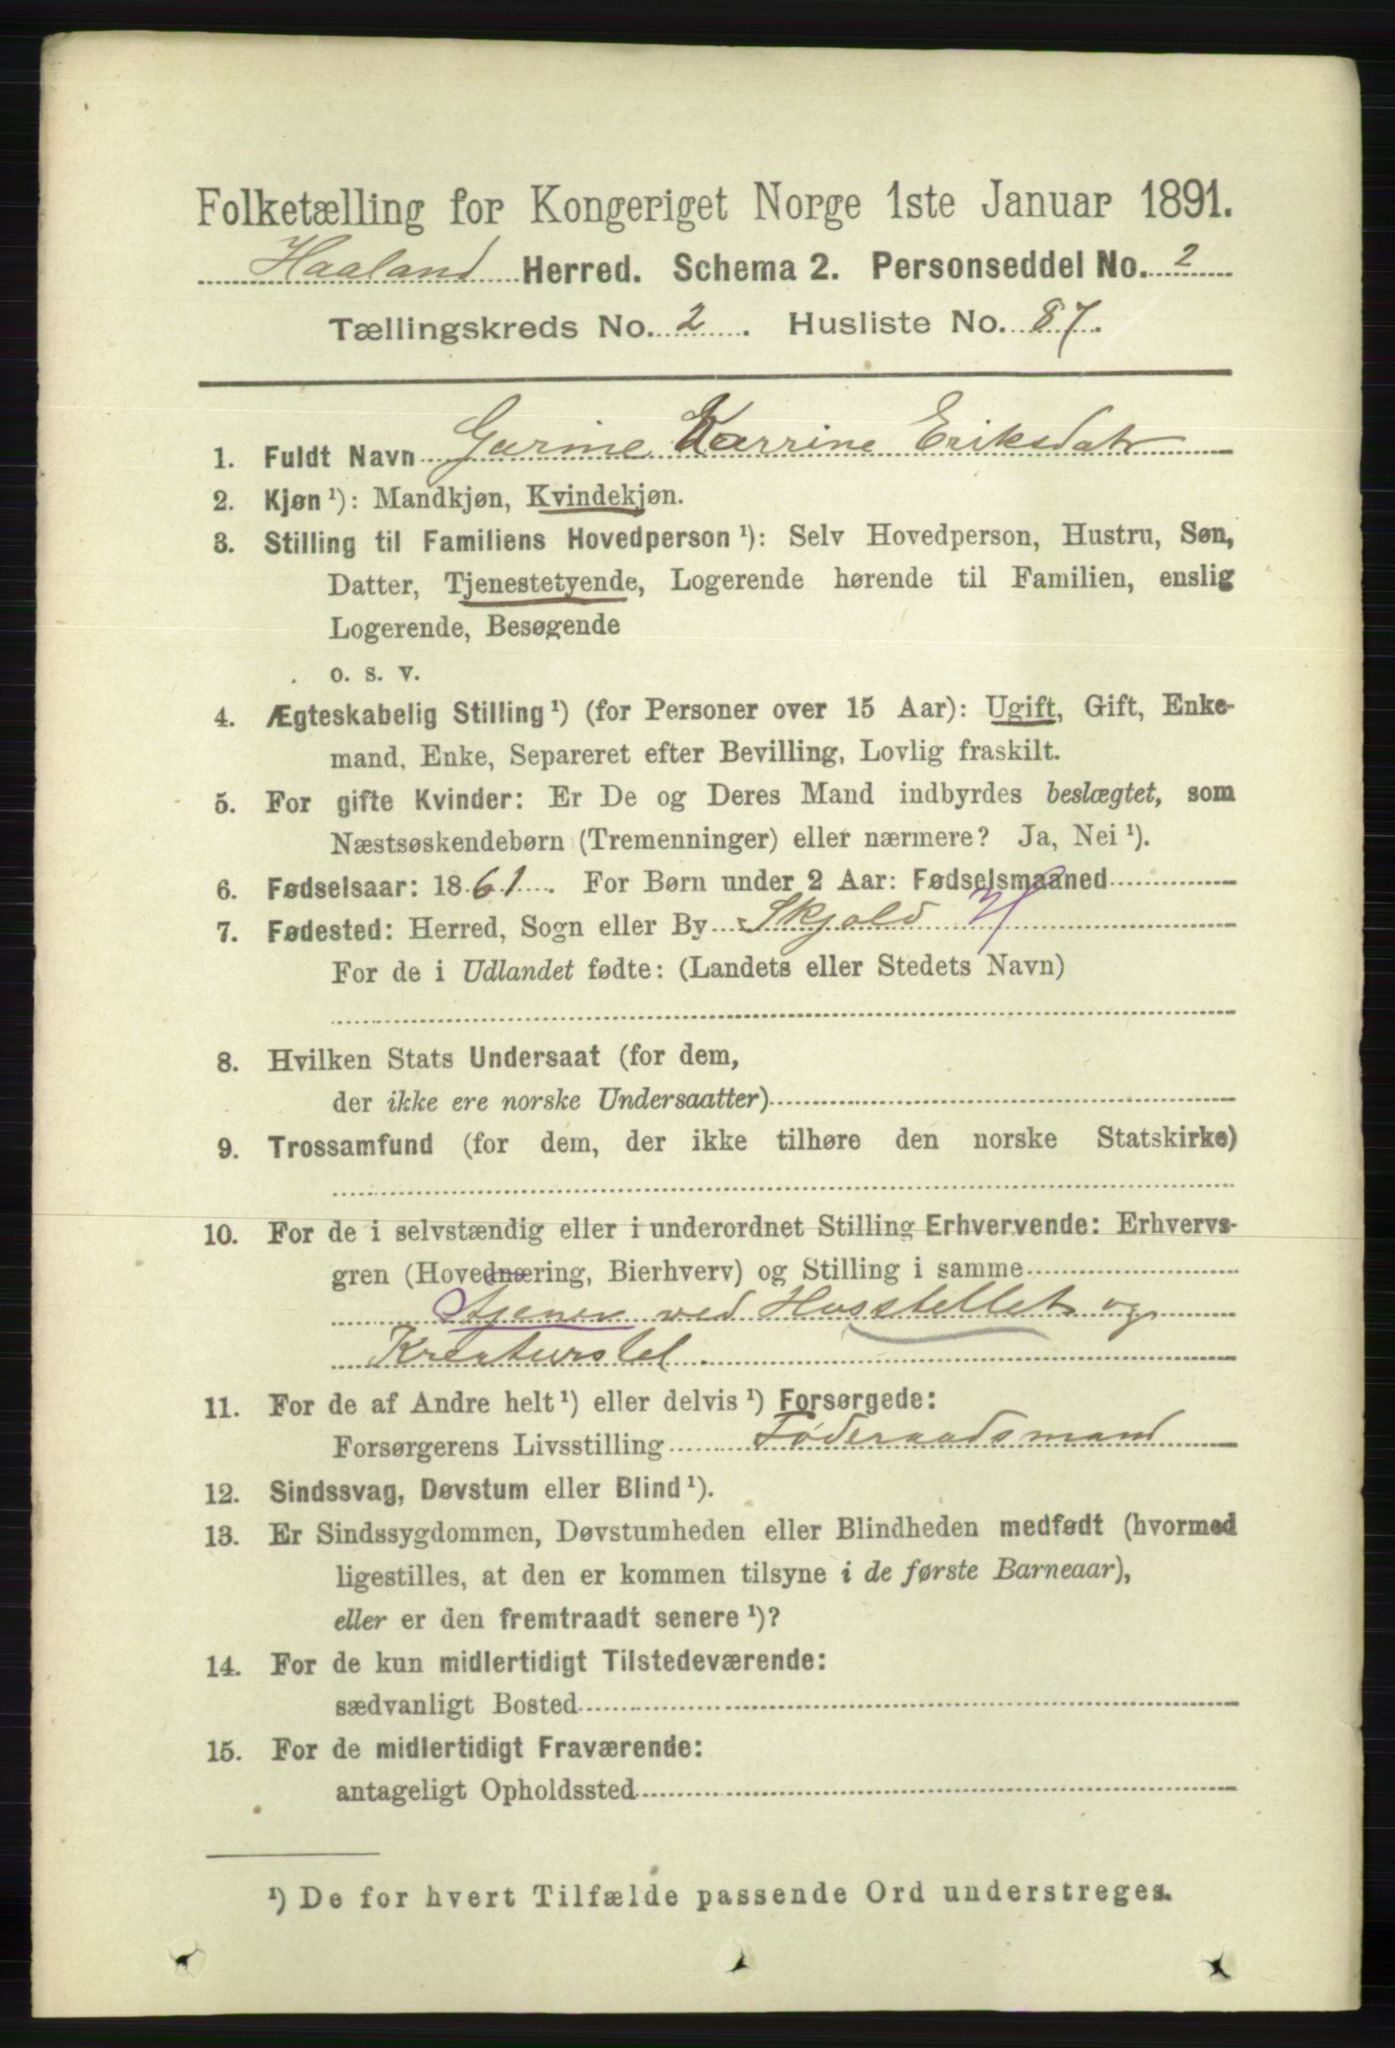 Folketælling for Kongeriget Norge 1ste Januar 1891.
Haaland Herred. Schema 2. Personseddel No. 2
Tællingskreds No. 2. Husliste No. 87.
1. Fuldt Navn Gurine Karrine Eriksdatr
2. Kjøn ¹): Mandkjøn, Kvindekjøn.
3. Stilling til Familiens Hovedperson ¹): Selv Hovedperson, Hustru, Søn,
Datter, Tjenestetyende, Logerende hørende til Familien, enslig
Logerende, Besøgende
o. s. v.
4. Ægteskabelig Stilling ¹) (for Personer over 15 Aar): Ugift, Gift, Enke-
mand, Enke, Separeret efter Bevilling, Lovlig fraskilt.
5. For gifte Kvinder: Er De og Deres Mand indbyrdes beslægtet, som
Næstsøskendebørn (Tremenninger) eller nærmere? Ja, Nei ¹).
6. Fødselsaar: 1861. For Børn under 2 Aar: Fødselsmaaned
7. Fødested: Herred, Sogn eller By Skjold
For de i Udlandet fødte: (Landets eller Stedets Navn)
8. Hvilken Stats Undersaat (for dem,
der ikke ere norske Undersaatter)
9. Trossamfund (for dem, der ikke tilhøre den norske Statskirke)
10. For de i selvstændig eller i underordnet Stilling Erhvervende: Erhvervs-
gren (Hovednæring, Bierhverv) og Stilling i samme
Tjener ved Husstellet og
Kreaturstel.
11. For de af Andre helt ¹) eller delvis ¹) Forsørgede:
Forsørgerens Livsstilling Føderaadsmand
12. Sindssvag, Døvstum eller Blind ¹).
13. Er Sindssygdommen, Døvstumheden eller Blindheden medfødt (hvormed
ligestilles, at den er kommen tilsyne i de første Barneaar),
eller er den fremtraadt senere ¹)?
14. For de kun midlertidigt Tilstedeværende:
sædvanligt Bosted
15. For de midlertidigt Fraværende:
antageligt Opholdssted
¹) De for hvert Tilfælde passende Ord understreges.